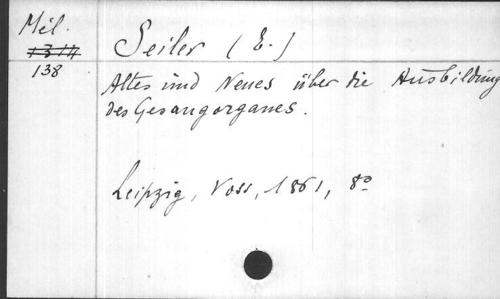 Mél.
138
Seiler (E.)
Altes und Neues über die Ausbildung
des Gesangorganes.
Leipzig, Voss, 1861, 8º